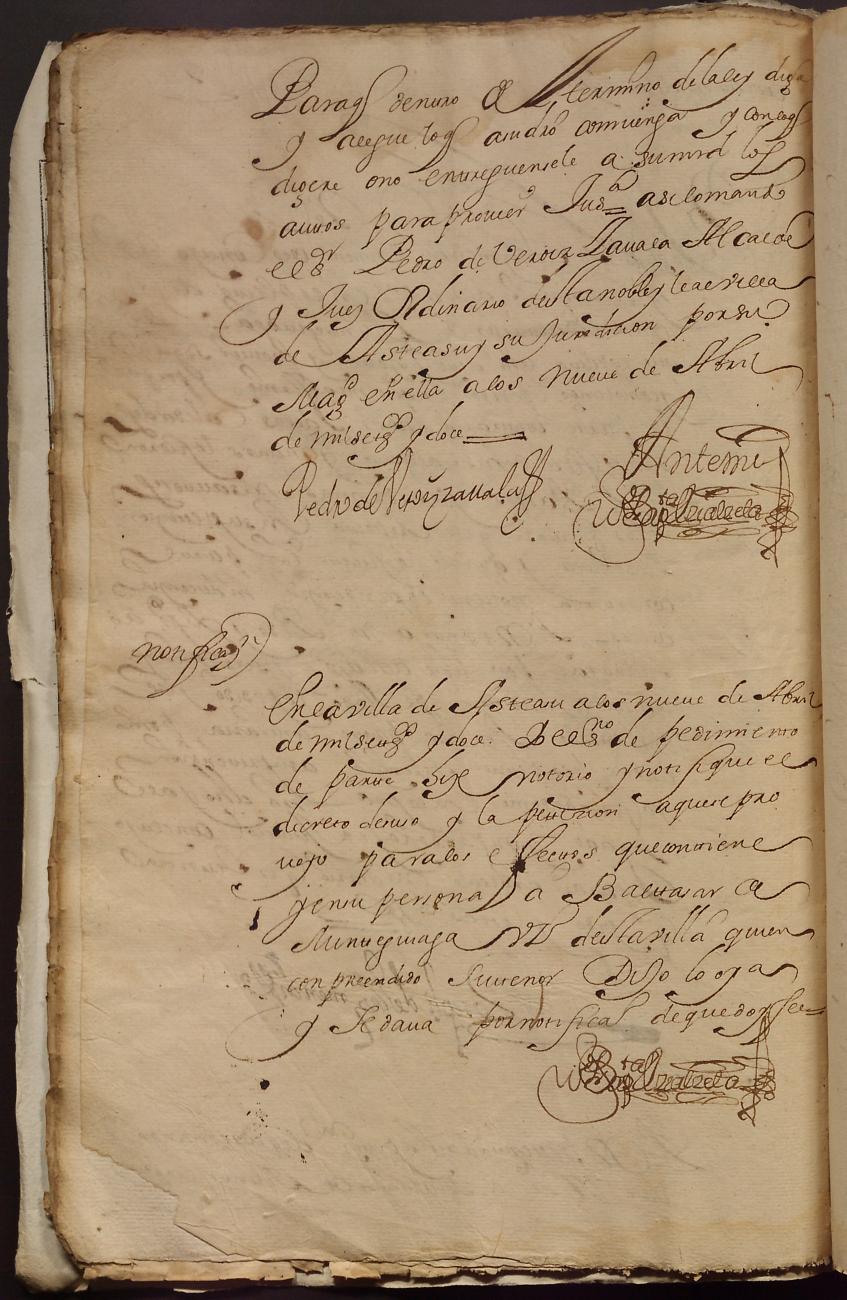 Paraq̃ dentro del termino de la ley diga
y alegue lo q̃ a su dr̃o combenga y con lo q̃
dijere o no entreguensele a su md los
autos para prover Jusª asi lo mando
el sr Pedro de Veroiz Zavala Alcalde
y Juez Ordinario desta noble y leal villa
de Asteasu y su Juridicion por su
Magd en ella a los nueve de Abril
de mil setos y doce
Pedro de Veroiz zavala Ante mi
notificaon
En la villa de Asteasu a los nueve de Abril
de mil setos y doce. Yo el essno de pedimiento
de parte hize notorio y notifique el
decreto desuso y la peticion a que se pro
veyo para los efectos que contiene
y en su persona a Baltasar de
vº desta villa quien
conpreendido su tenor Dijo lo oya
y se dava por notificado de que doy fee